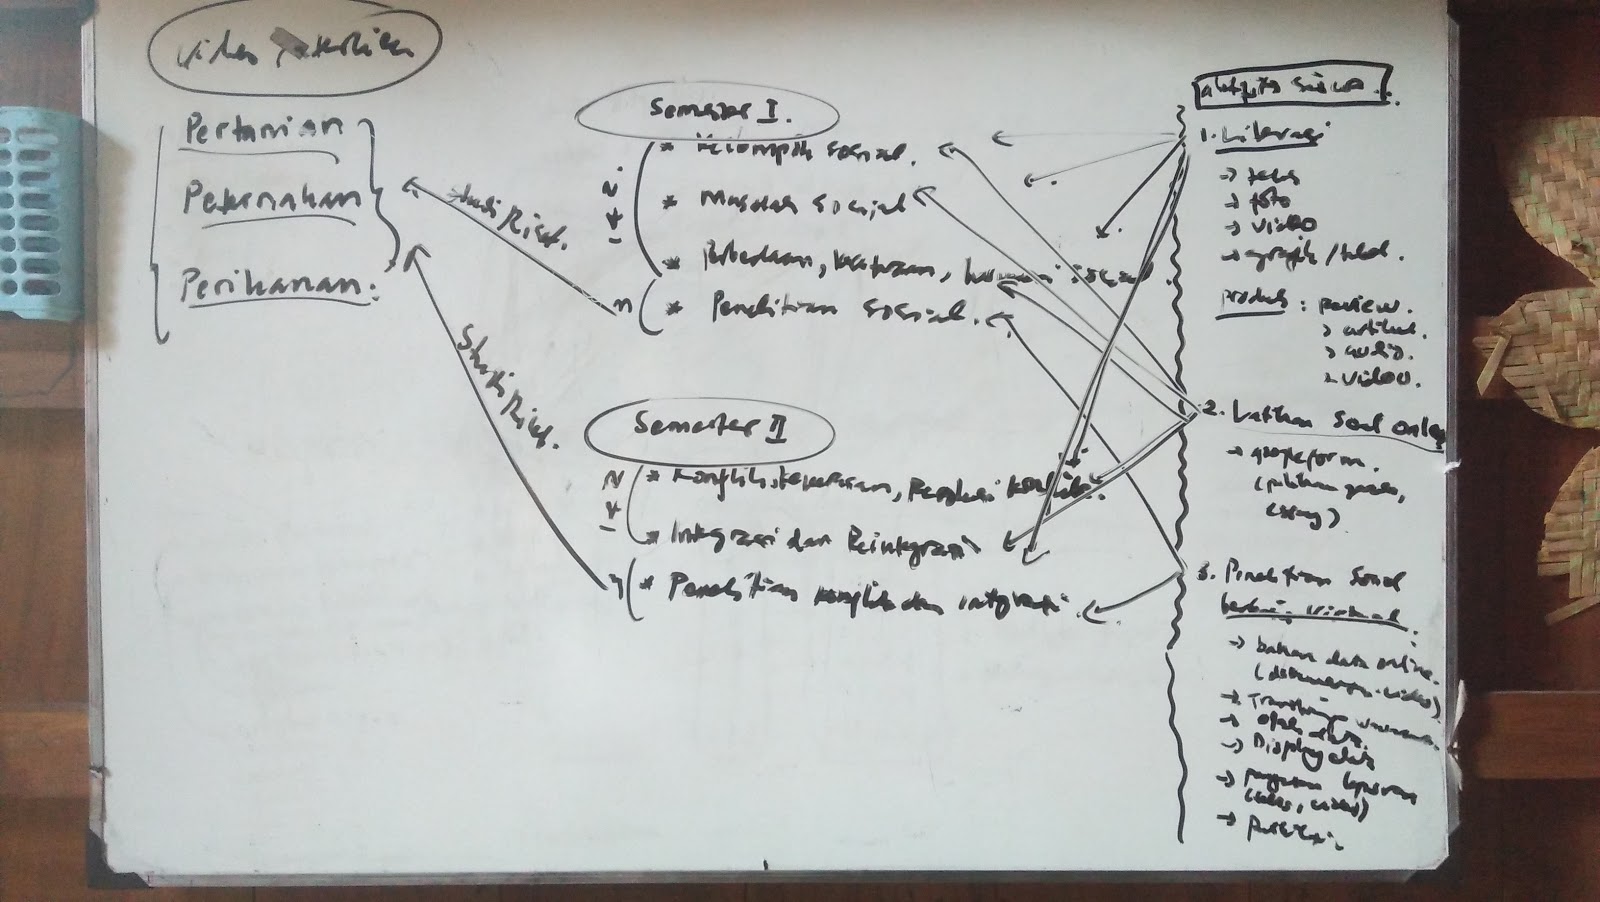 Video
Pertanian
Peternakan
Perikanan.
Studi Riset.
Studi Riset.
Semester I.
* Kelompok sosial.
* Masalah sosial
* Perbedaan, kesetaraan, harmoni sosial.
* Penelitian sosial.
Semester II
* Konflik, kekerasan, Resolusi konflik.
* Integrasi dan Reintegrasi
* Penelitian konflik dan integrasi.
aktifitas siswa.
1. Literasi
→ teks
→ foto
→ video
→ grafik / tabel.
produk : review.
→ artikel.
→ audio.
→ video.
2. Latihan Soal online
→ googleform.
(pilihan ganda,
essay)
3. Penelitian Sosial
→ bahan data online.
→ olah data.
→ Display data
→ laporan
(teks, video)
→ presentasi.